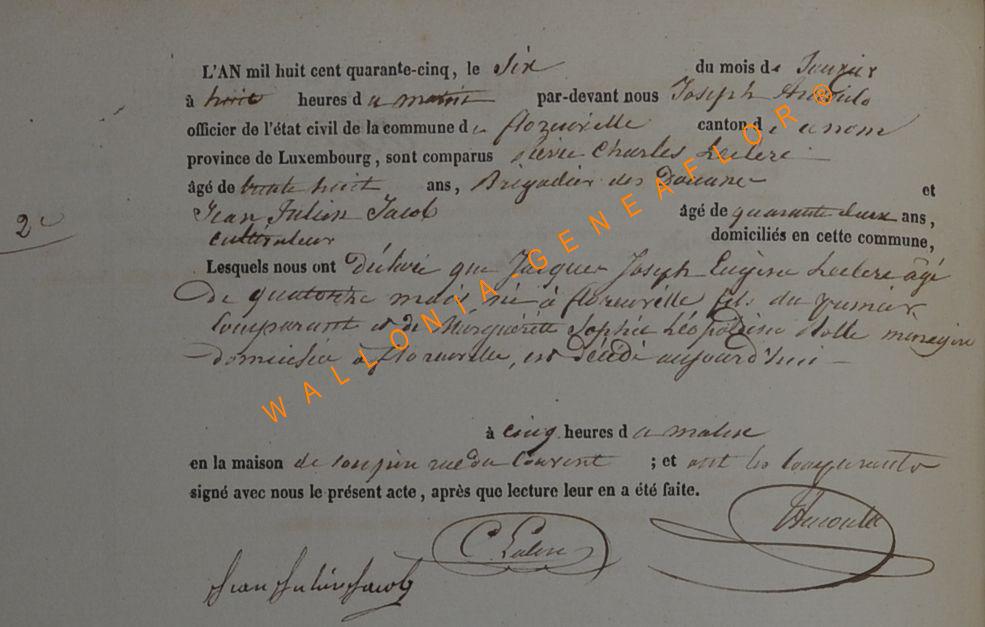 L'AN mil huit cent quarante-cinq, le Six du mois de Janvier
à huit heures du matin par-devant nous Joseph
officier de l'état civil de la commune de florenville canton de ce nom
province de Luxembourg, sont comparus Pierre Charles Leclere
âgé de trente huit ans, Brigadier des Douane et
Jean Julien Jacob âgé de quarante deux ans,
cultivateur domiciliés en cette commune,
2e
Lesquels nous ont Déclaré que Jacques Joseph Eugène Leclere âgé
de quatorze mois né à florenville fils du premier
Comparant et de Marguerite Sophie Léopoldine Nolle ménagère
domiciliée à florenville, est décédé aujourd'hui
à cinq heures du matin
en la maison de son père rue du Couvent ; et ont les Comparants
signé avec nous le présent acte, après que lecture leur en a été faite.
C. Leclere
Jean Julien Jacob
WALLONIA-GENEAFLOR®